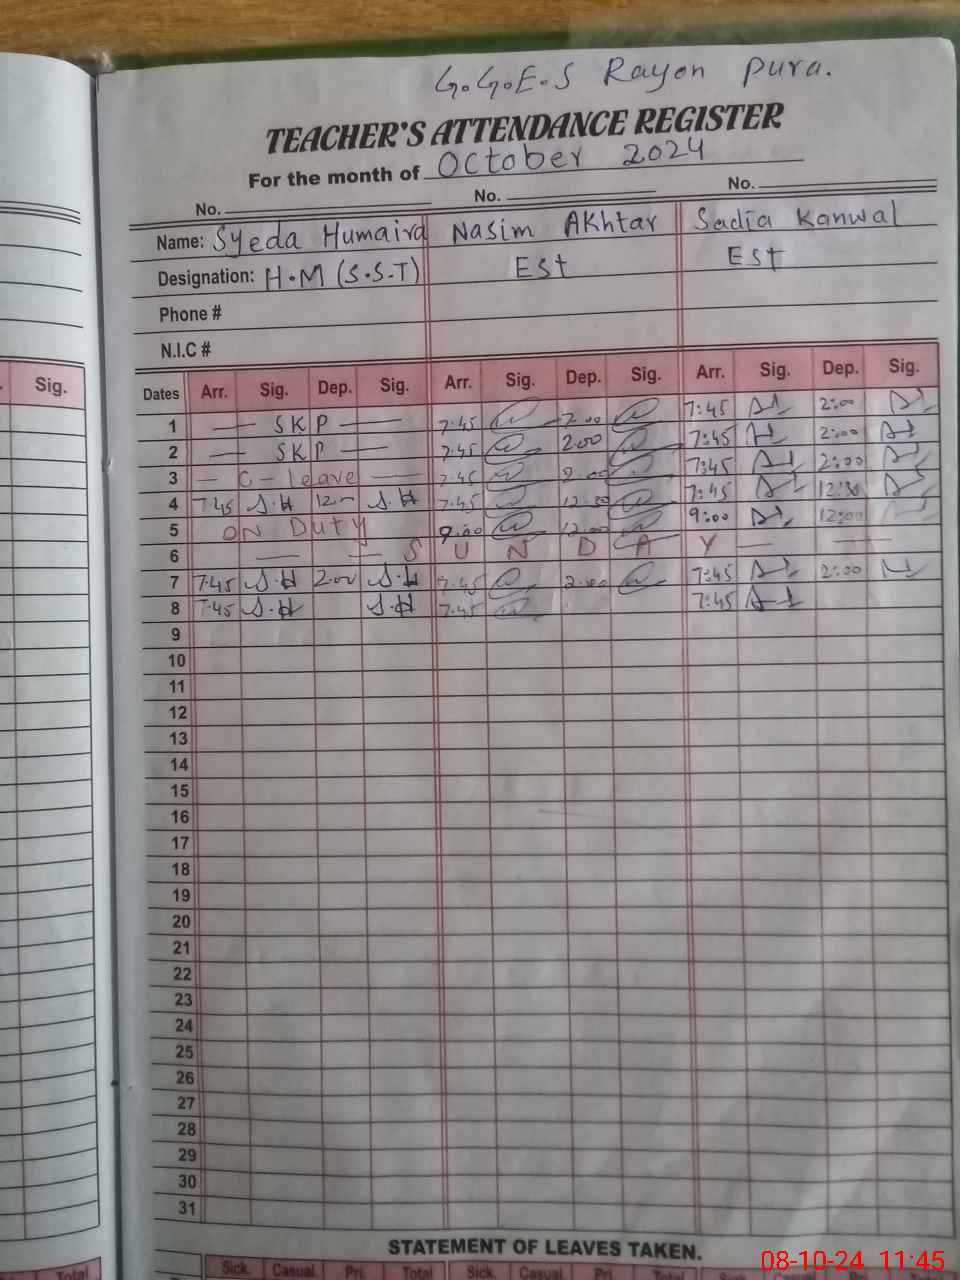 G.G.E.S Rayon Pura.
TEACHER'S ATTENDANCE REGISTER
For the month of October 2024
No. No. No.
Name: Syeda Humaira Nasim Akhtar Sadia Kanwal
Designation: H.M (S.S.T) Est Est
Phone #
N.I.C #
Sig.
Dates Arr. Sig. Dep. Sig. Arr. Sig. Dep. Sig. Arr. Sig. Dep. Sig.
1 — SKP — 7:45 2:00 7:45 2:00
2 — SKP — 7:45 2:00 7:45 2:00
3 — C-leave — 7:45 2:00 7:45 2:00
4 7:45 S.H 12 S.H 7:45 12:30 7:45 12:30
5 ON Duty 9:00 12:00 9:00 12:00
6 — — S U N D A Y — —
7 7:45 S.H 2:00 S.H 7:45 2:00 7:45 2:00
8 7:45 S.H S.H 7:45 7:45
9
10
11
12
13
14
15
16
17
18
19
20
21
22
23
24
25
26
27
28
29
30
31
STATEMENT OF LEAVES TAKEN.
Total Sick. Casual Pri. Total Sick. Casual Pri. Total Sick. Casual Pri. Total
08-10-24 11:45